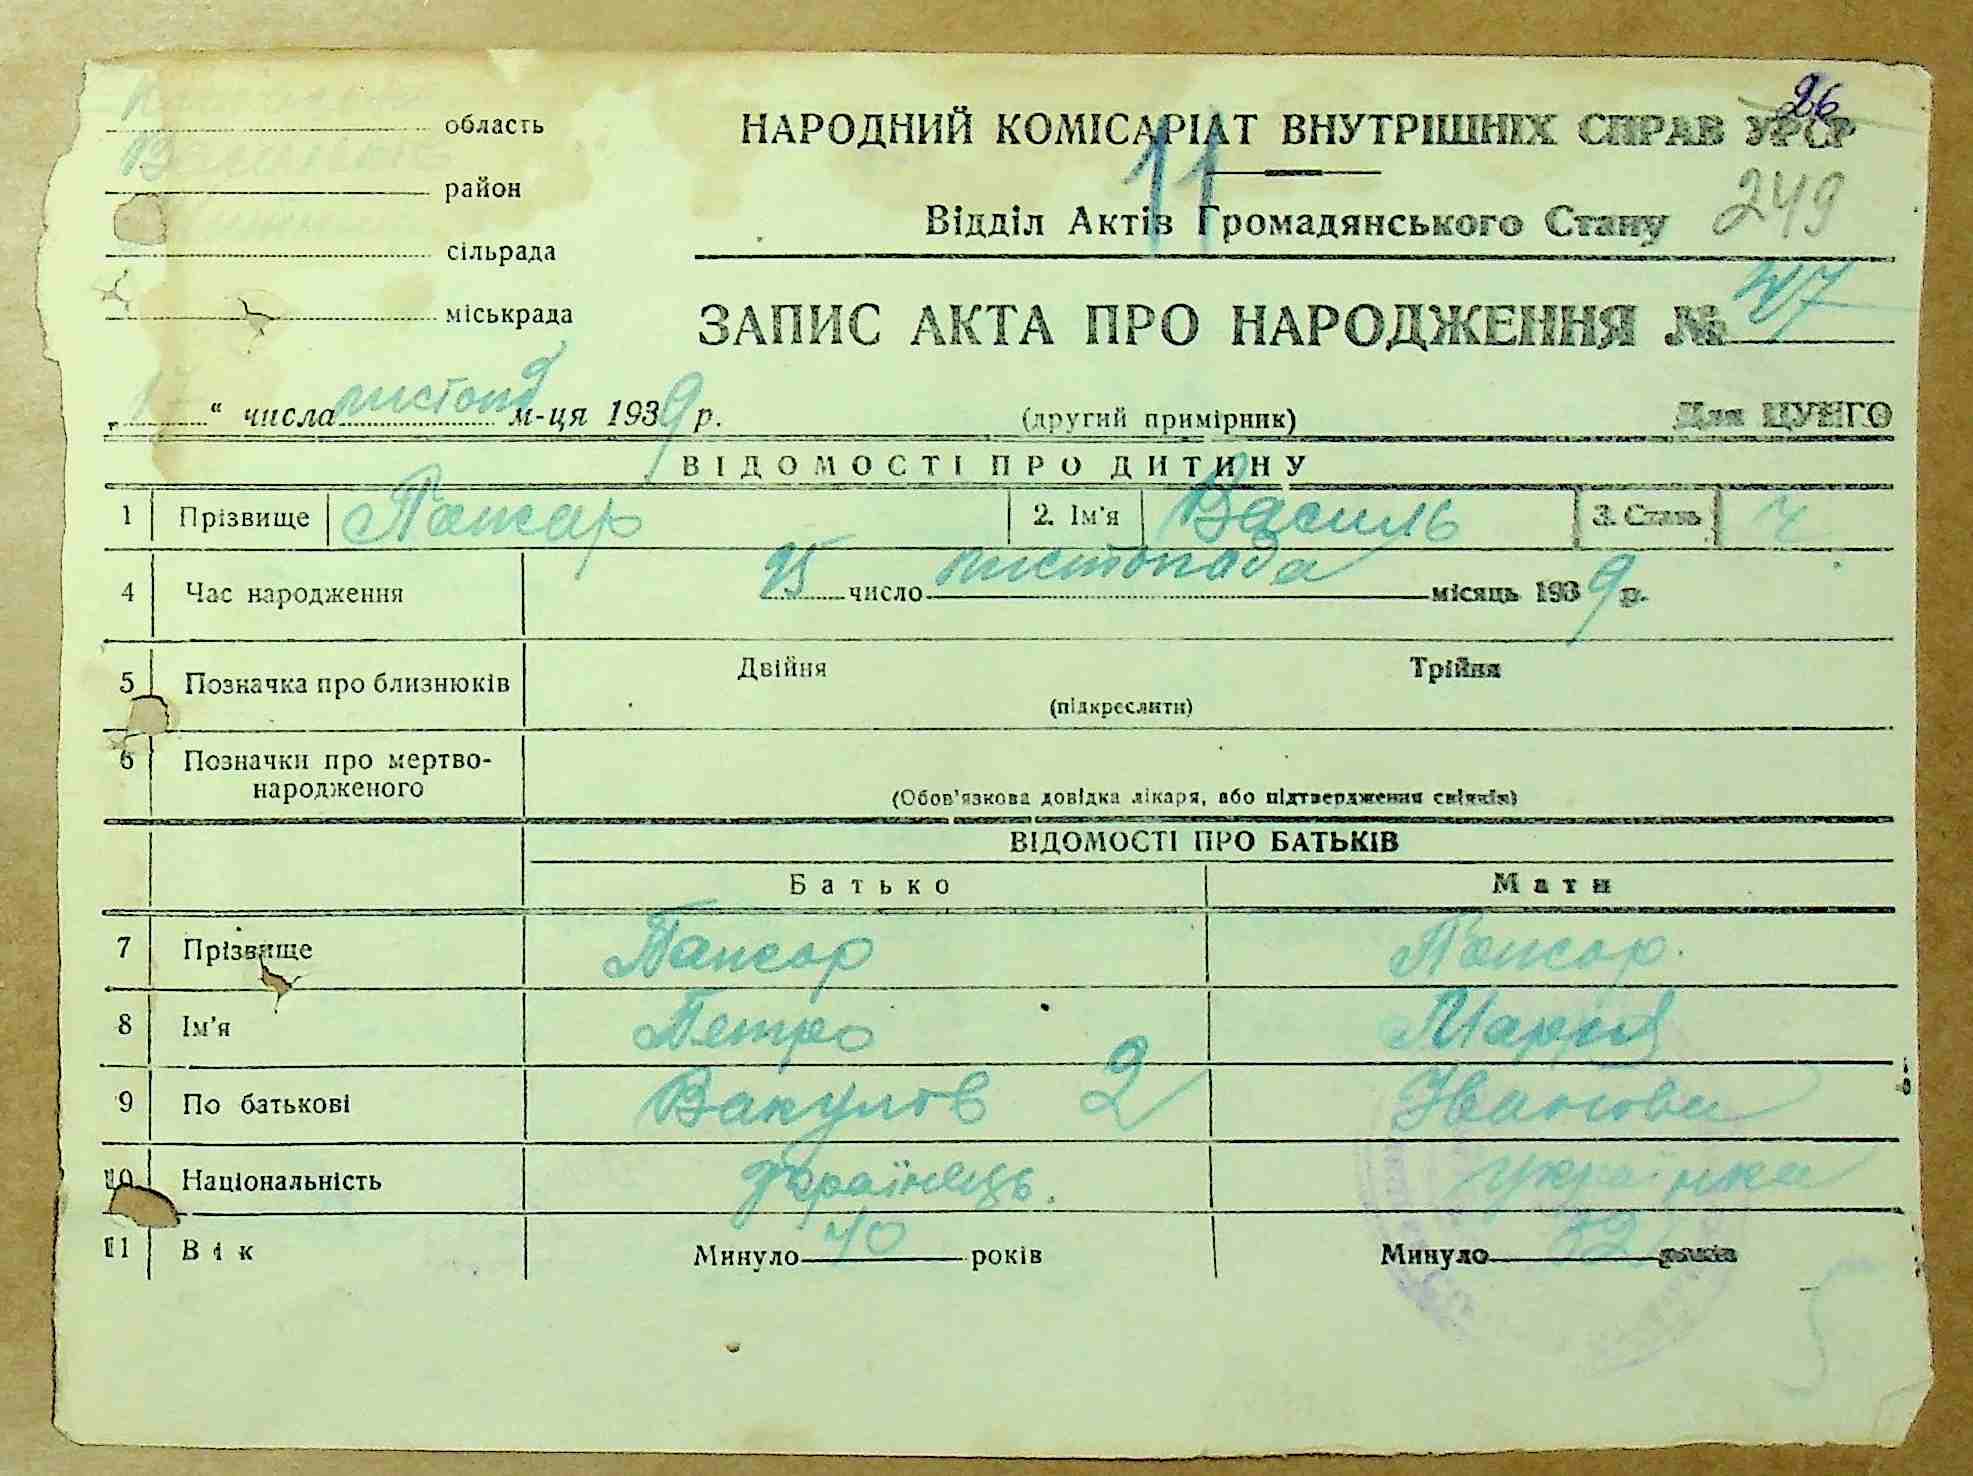 26
область
НАРОДНИЙ КОМІСАРІАТ ВНУТРІШНІХ СПРАВ УРСР
11
район
249
Відділ Актів Громадянського Стану
сільрада
міськрада
ЗАПИС АКТА ПРО НАРОДЖЕННЯ №
“ числа листопад м-ця 1939 р.
(другий примірник)
Для ЦУНГО
ВІДОМОСТІ ПРО ДИТИНУ
1 Прізвище 2. Ім'я Василь 3. Стать ч.
4 Час народження 25 число листопада місяць 1939 р.
5 Позначка про близнюків Двійня Трійня
(підкреслити)
6 Позначки про мертво-
народженого
(Обов'язкова довідка лікаря, або підтвердження свідків)
ВІДОМОСТІ ПРО БАТЬКІВ
Батько Мати
7 Прізвище
8 Ім'я Петро Мария
9 По батькові Вакулов 2 Іванова
10 Національність українець. українка
11 Вік Минуло 40 років Минуло 32 років